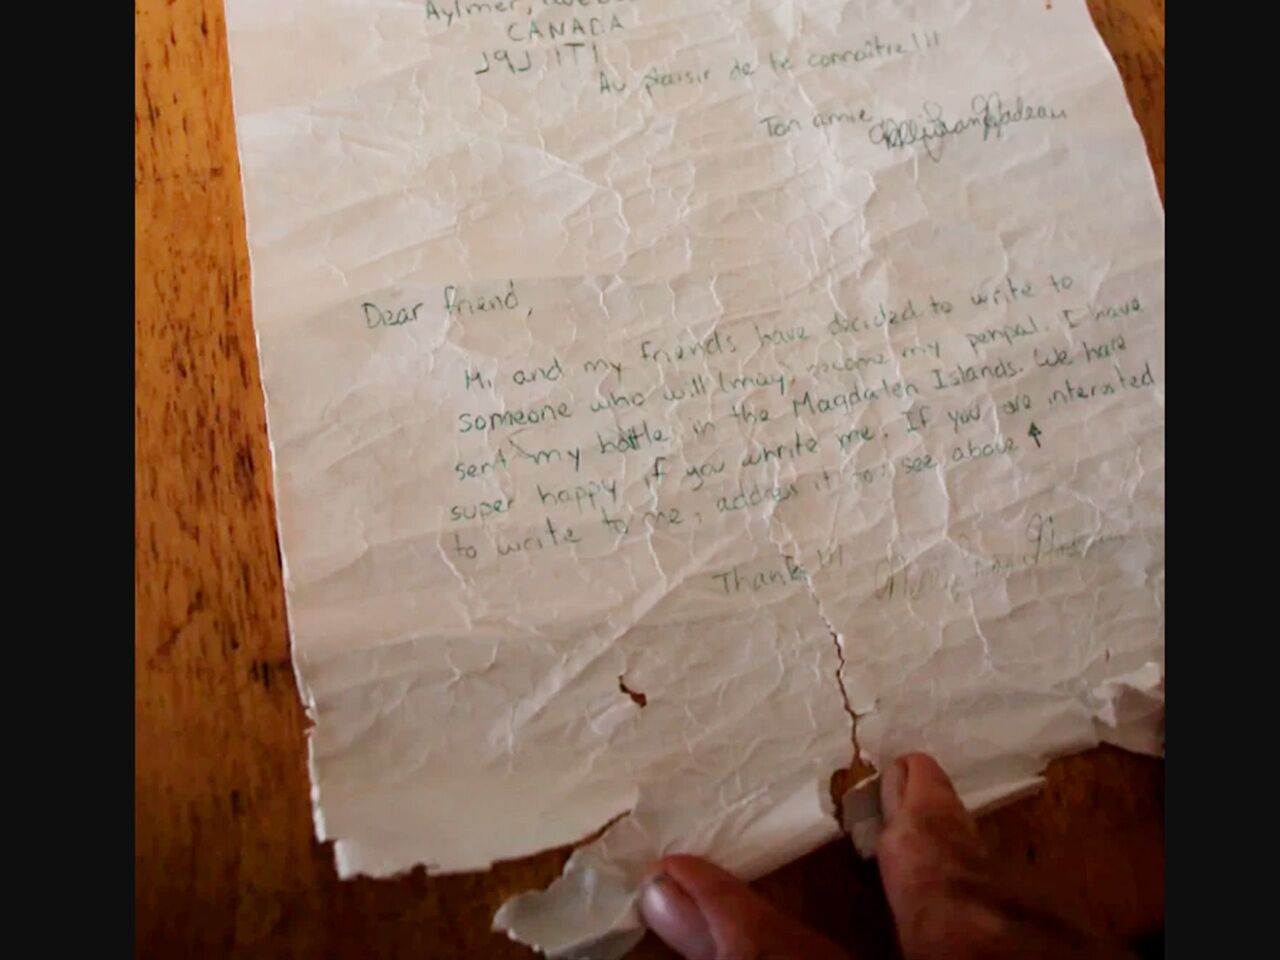 Aylmer,
CANADA
J9J 1T1
Au plaisir de te connaître!!!
Ton amie
Dear friend,
Hi, and my friends have decided to write to
someone who will (may) become my penpal. I have
sent my bottle in the Magdalen Islands. We hare
super happy if you whrite me. If you are interested
to write to me, address it to: see above ↑
Thanks!!!